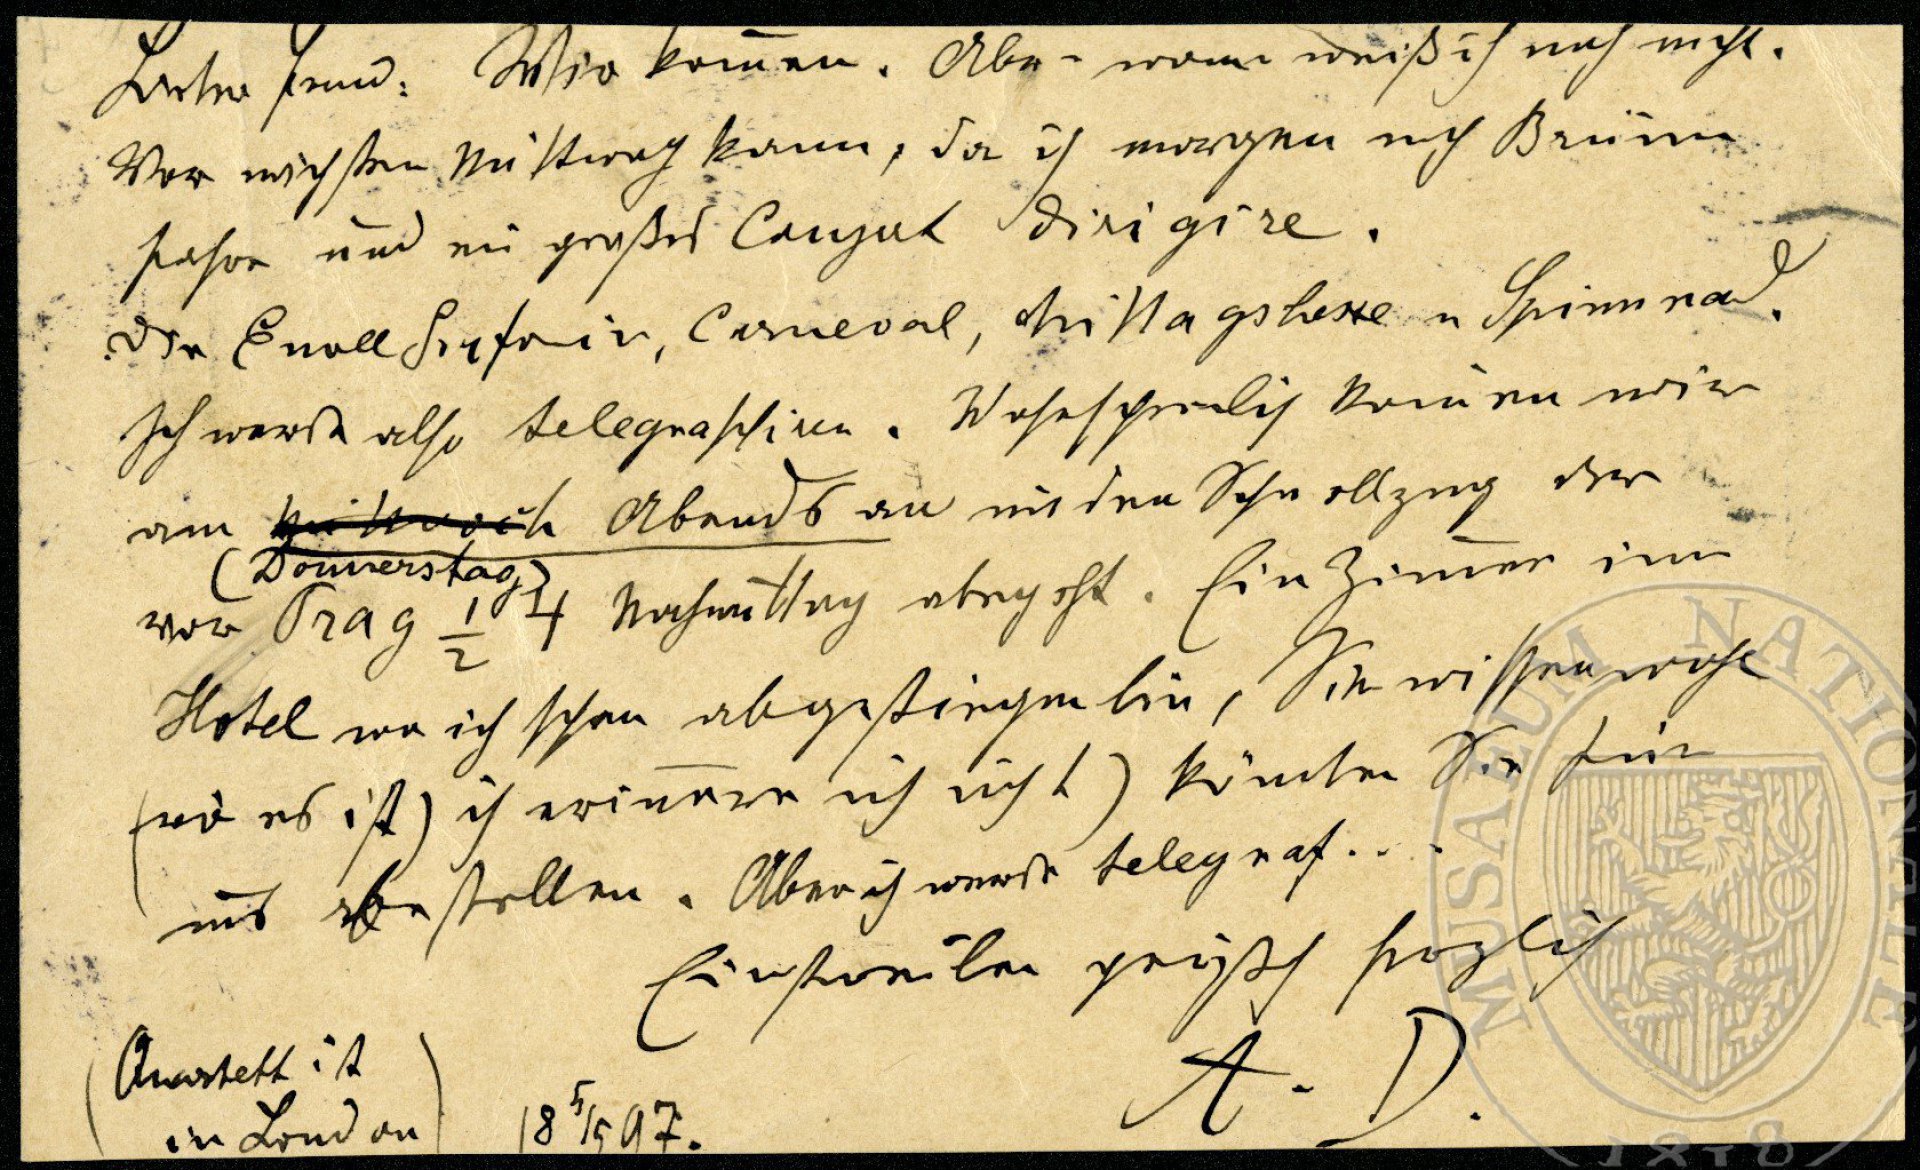 Lieber Freund: Wir kom̅en. Aber wann weiß ich noch nicht.
Vor nächsten Mittwoch kaum, da ich morgen nach Brünn
fahre und ein großes Conzert dirigire.
Die Emoll Sinfonie, Carneval, Mittagshexe u Spinnrad.
Ich werde also telegraphiren. Wahrscheinlich kom̅en wir
am Mittwoch Abends an mit den Schnellzug der
(Donnerstag)
von Prag 1/2 4 Nachmittag abgeht. Ein Zim̅er im
Hotel wo ich schon abgestiegen bin, Sie wissen wohl
(wo es ist) ich erin̅ere mich nicht) könnten Sie für
uns bestellen. Aber ich werde telegraf...
Einstweilen grüßt herzlich
A. D.
(Quartett ist
in London)
18 5/5 97.
MUSAEUM NATIONALE
1818